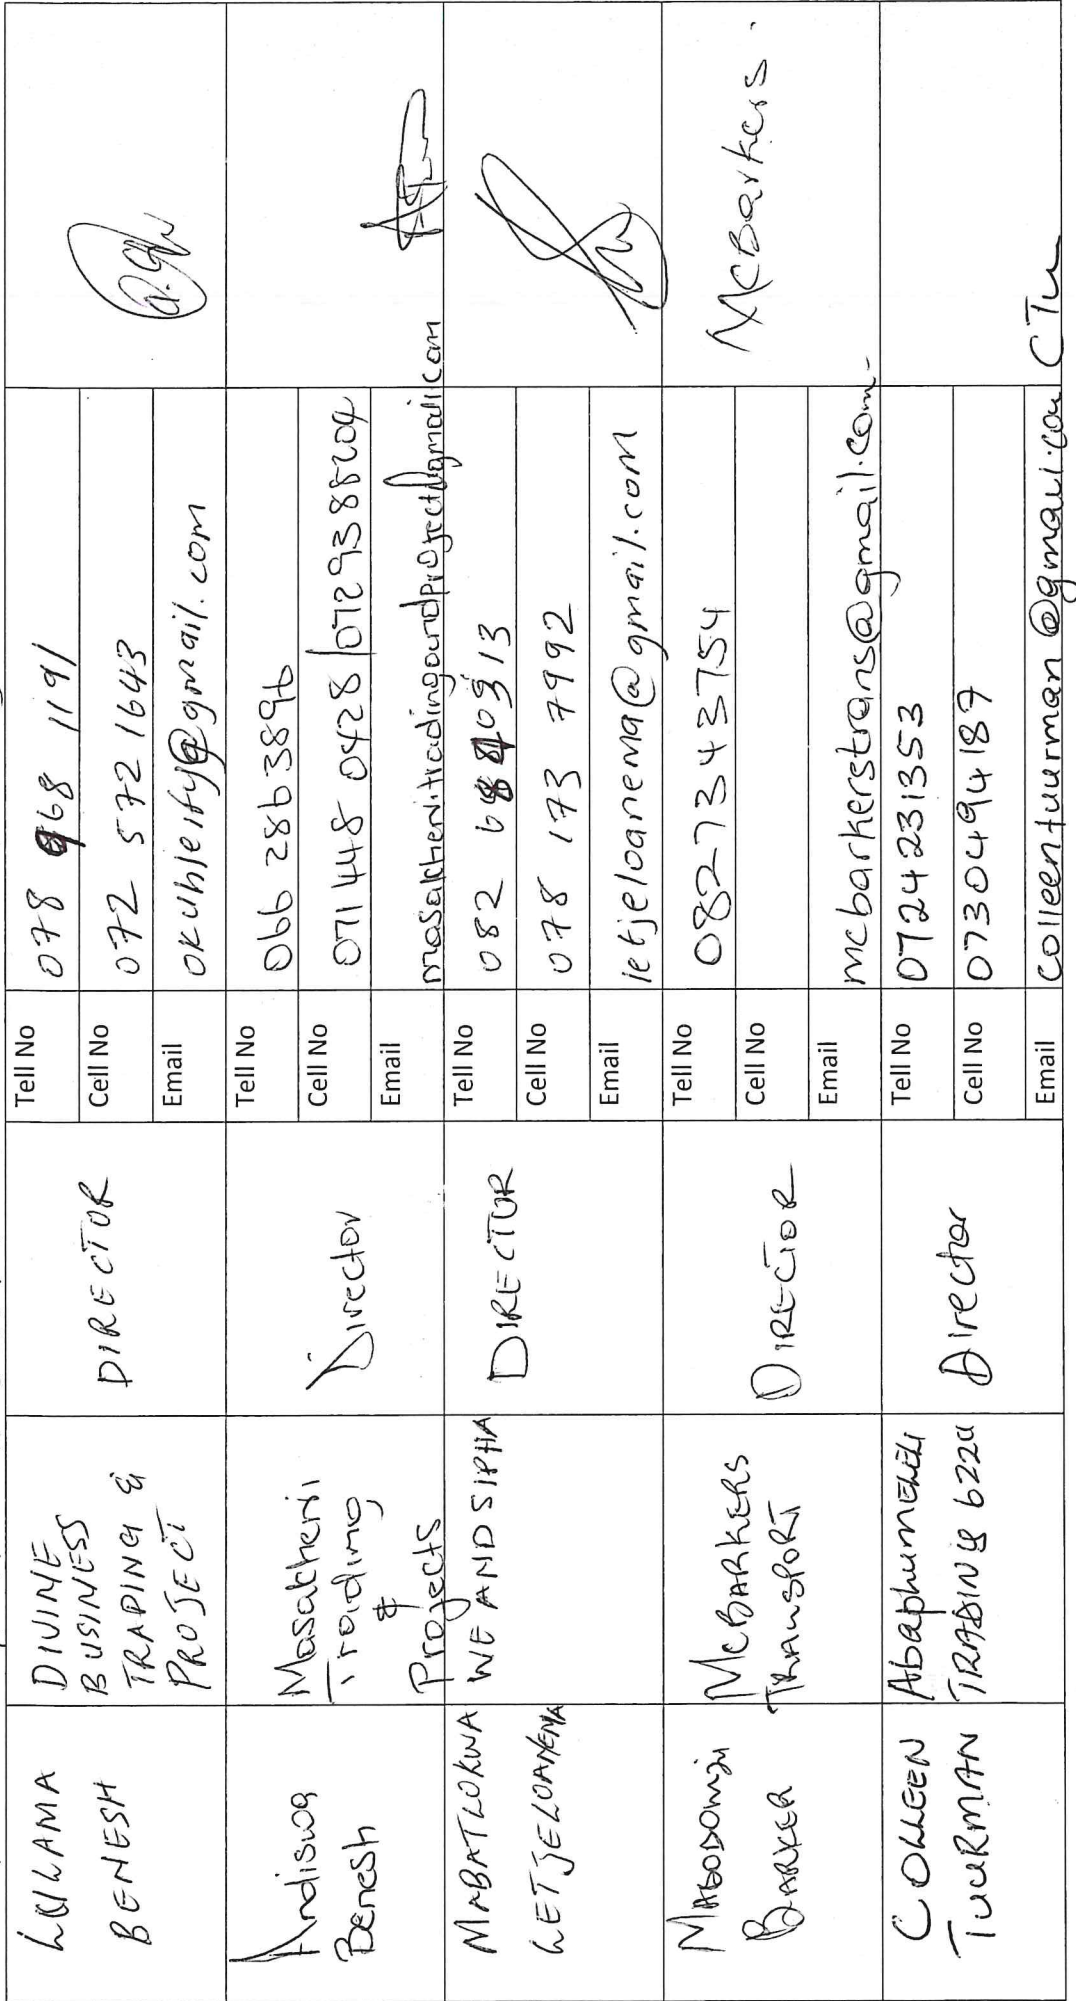 LULAMA
BENESH
DIVINE
BUSINESS
TRADING &
PROJECT
DIRECTOR
Tell No
078 968 1191
Cell No
072 572 1643
Email
okuhleify@gmail.com
Andiswa
Benesh
Masakheni
Trading
&
Projects
Director
Tell No
066 2863896
Cell No
071 448 0428 | 0729388204
Email
masakhenitradingandproject@gmail.com
MABATLOKWA
LETJELOANEMA
WE AND SIPHA
DIRECTOR
Tell No
Cell No
078 173 7992
Email
letjeloanema@gmail.com
BARKER
McBARKERS
TRANSPORT
DIRECTOR
Tell No
0827343754
Cell No
Email
mcbarkerstrans@gmail.com
McBarkers.
COLLEEN
TUURMAN
Abaphumeleli
TRADING 622
Director
Tell No
0724231353
Cell No
0730494187
Email
colleentuurman@gmail.com
CTu